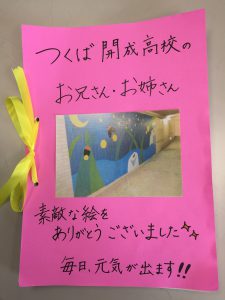 つくば開成高校の
お兄さん・お姉さん
素敵な絵を
ありがとうございました
毎日、元気が出ます!!